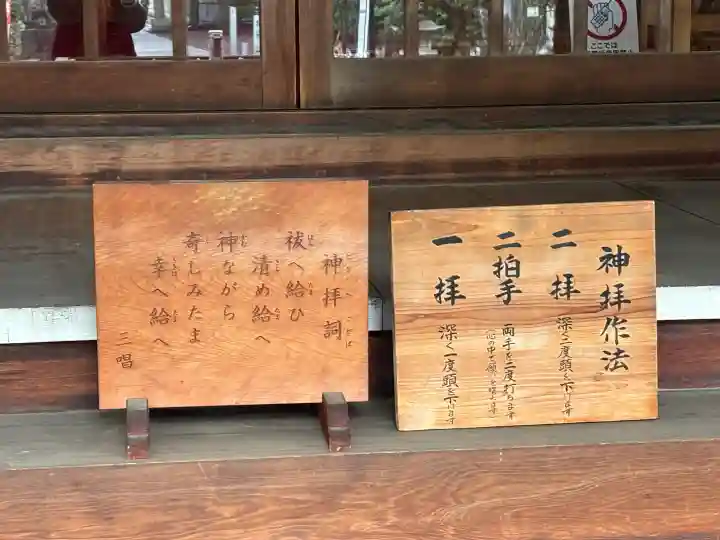 神拝詞
祓へ給ひ
清め給へ
神ながら
奇しみたま
幸へ給へ
三唱
神拝作法
二拝 深く二度頭を下げます
二拍手 両手を二度打ちます
一拝 深く一度頭を下げます
ここでは